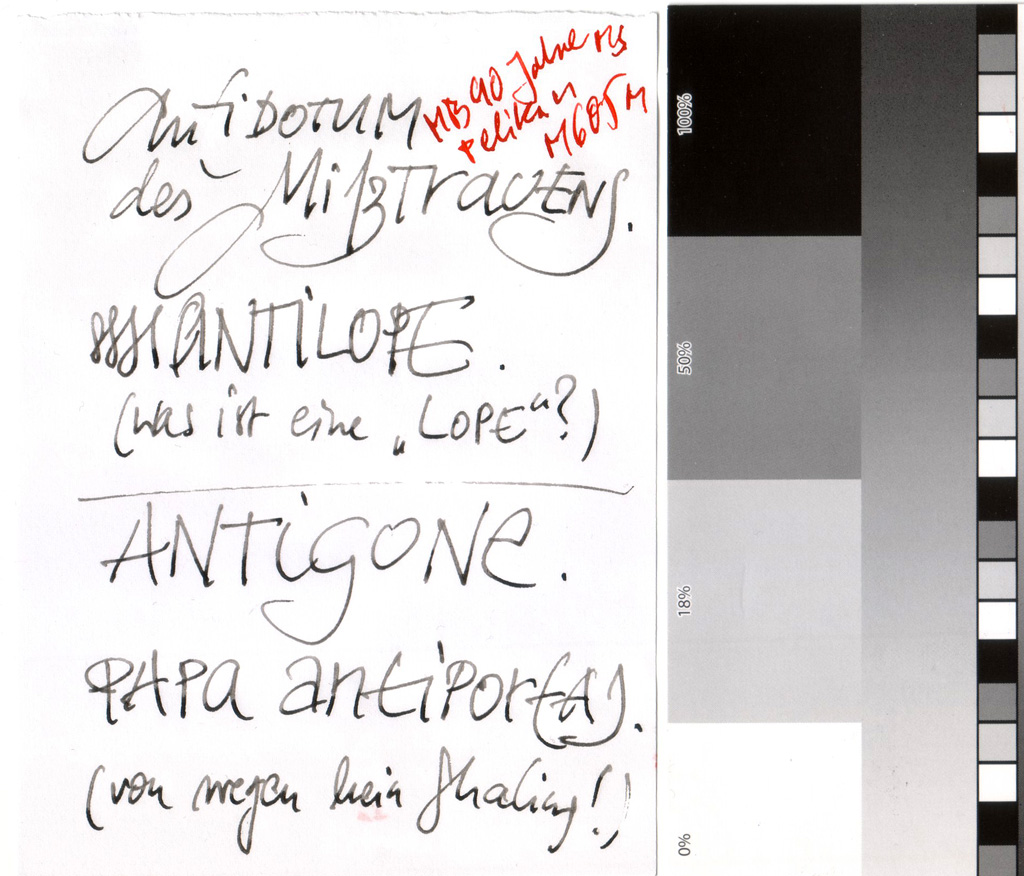 AntiDOTUM
MB 90 Jahre
Pelikan
M605 M
des MißTrauENS.
ANTILOPE.
(was ist eine „LOPE“?)
ANTigoNe.
PAPA antiPor(A).
(von wegen kein Shading!)
100%
50%
18%
0%